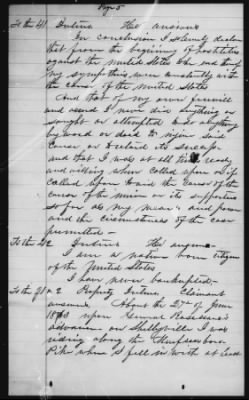 Page 5
To the 41 Interr. He answers
In conclusion I solemnly declare
that from the beginning of hostilities
against the United States to the end thereof
my sympathies were constantly with
the cause of the United States
And that of my own free will
and accord I never did anything or
sought or attempted to do anything
by word or deed to injure said
cause or retard its success
and that I was at all times ready
and willing when called upon or if
called upon to aid the cause of the
cause of the union or its supporters
so far as my means and power
and the circumstances of the case
permitted—
To the 42 Interr. He answers—
I am a native born citizen
of the United States
I have never bankrupted—
To the 1 & 2 Property Interr. Claimant
answers. About the 27th June
1863 upon General Rosecrans's
advance on Shelbyville I was
riding along the Murfreesboro
Pike when I fell in with at least